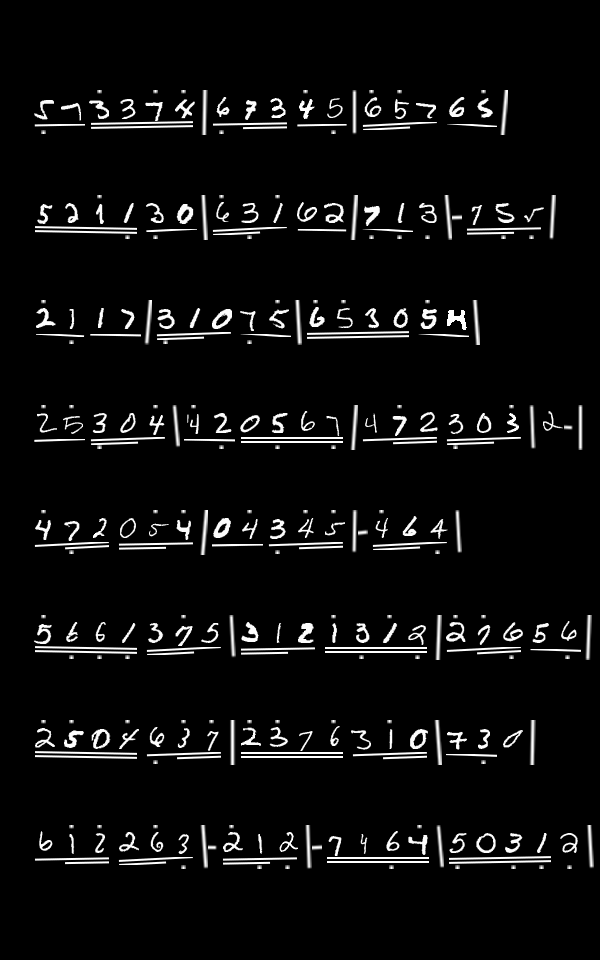 573374|67345|65765|
521130|63162|713|-755
2117|31075|653054|
25304|420567|472303|2-|
472054|04345|-464|
5661375|3121312|27656|
2504637|2376310|730|
612263|-212|-7464|50312|